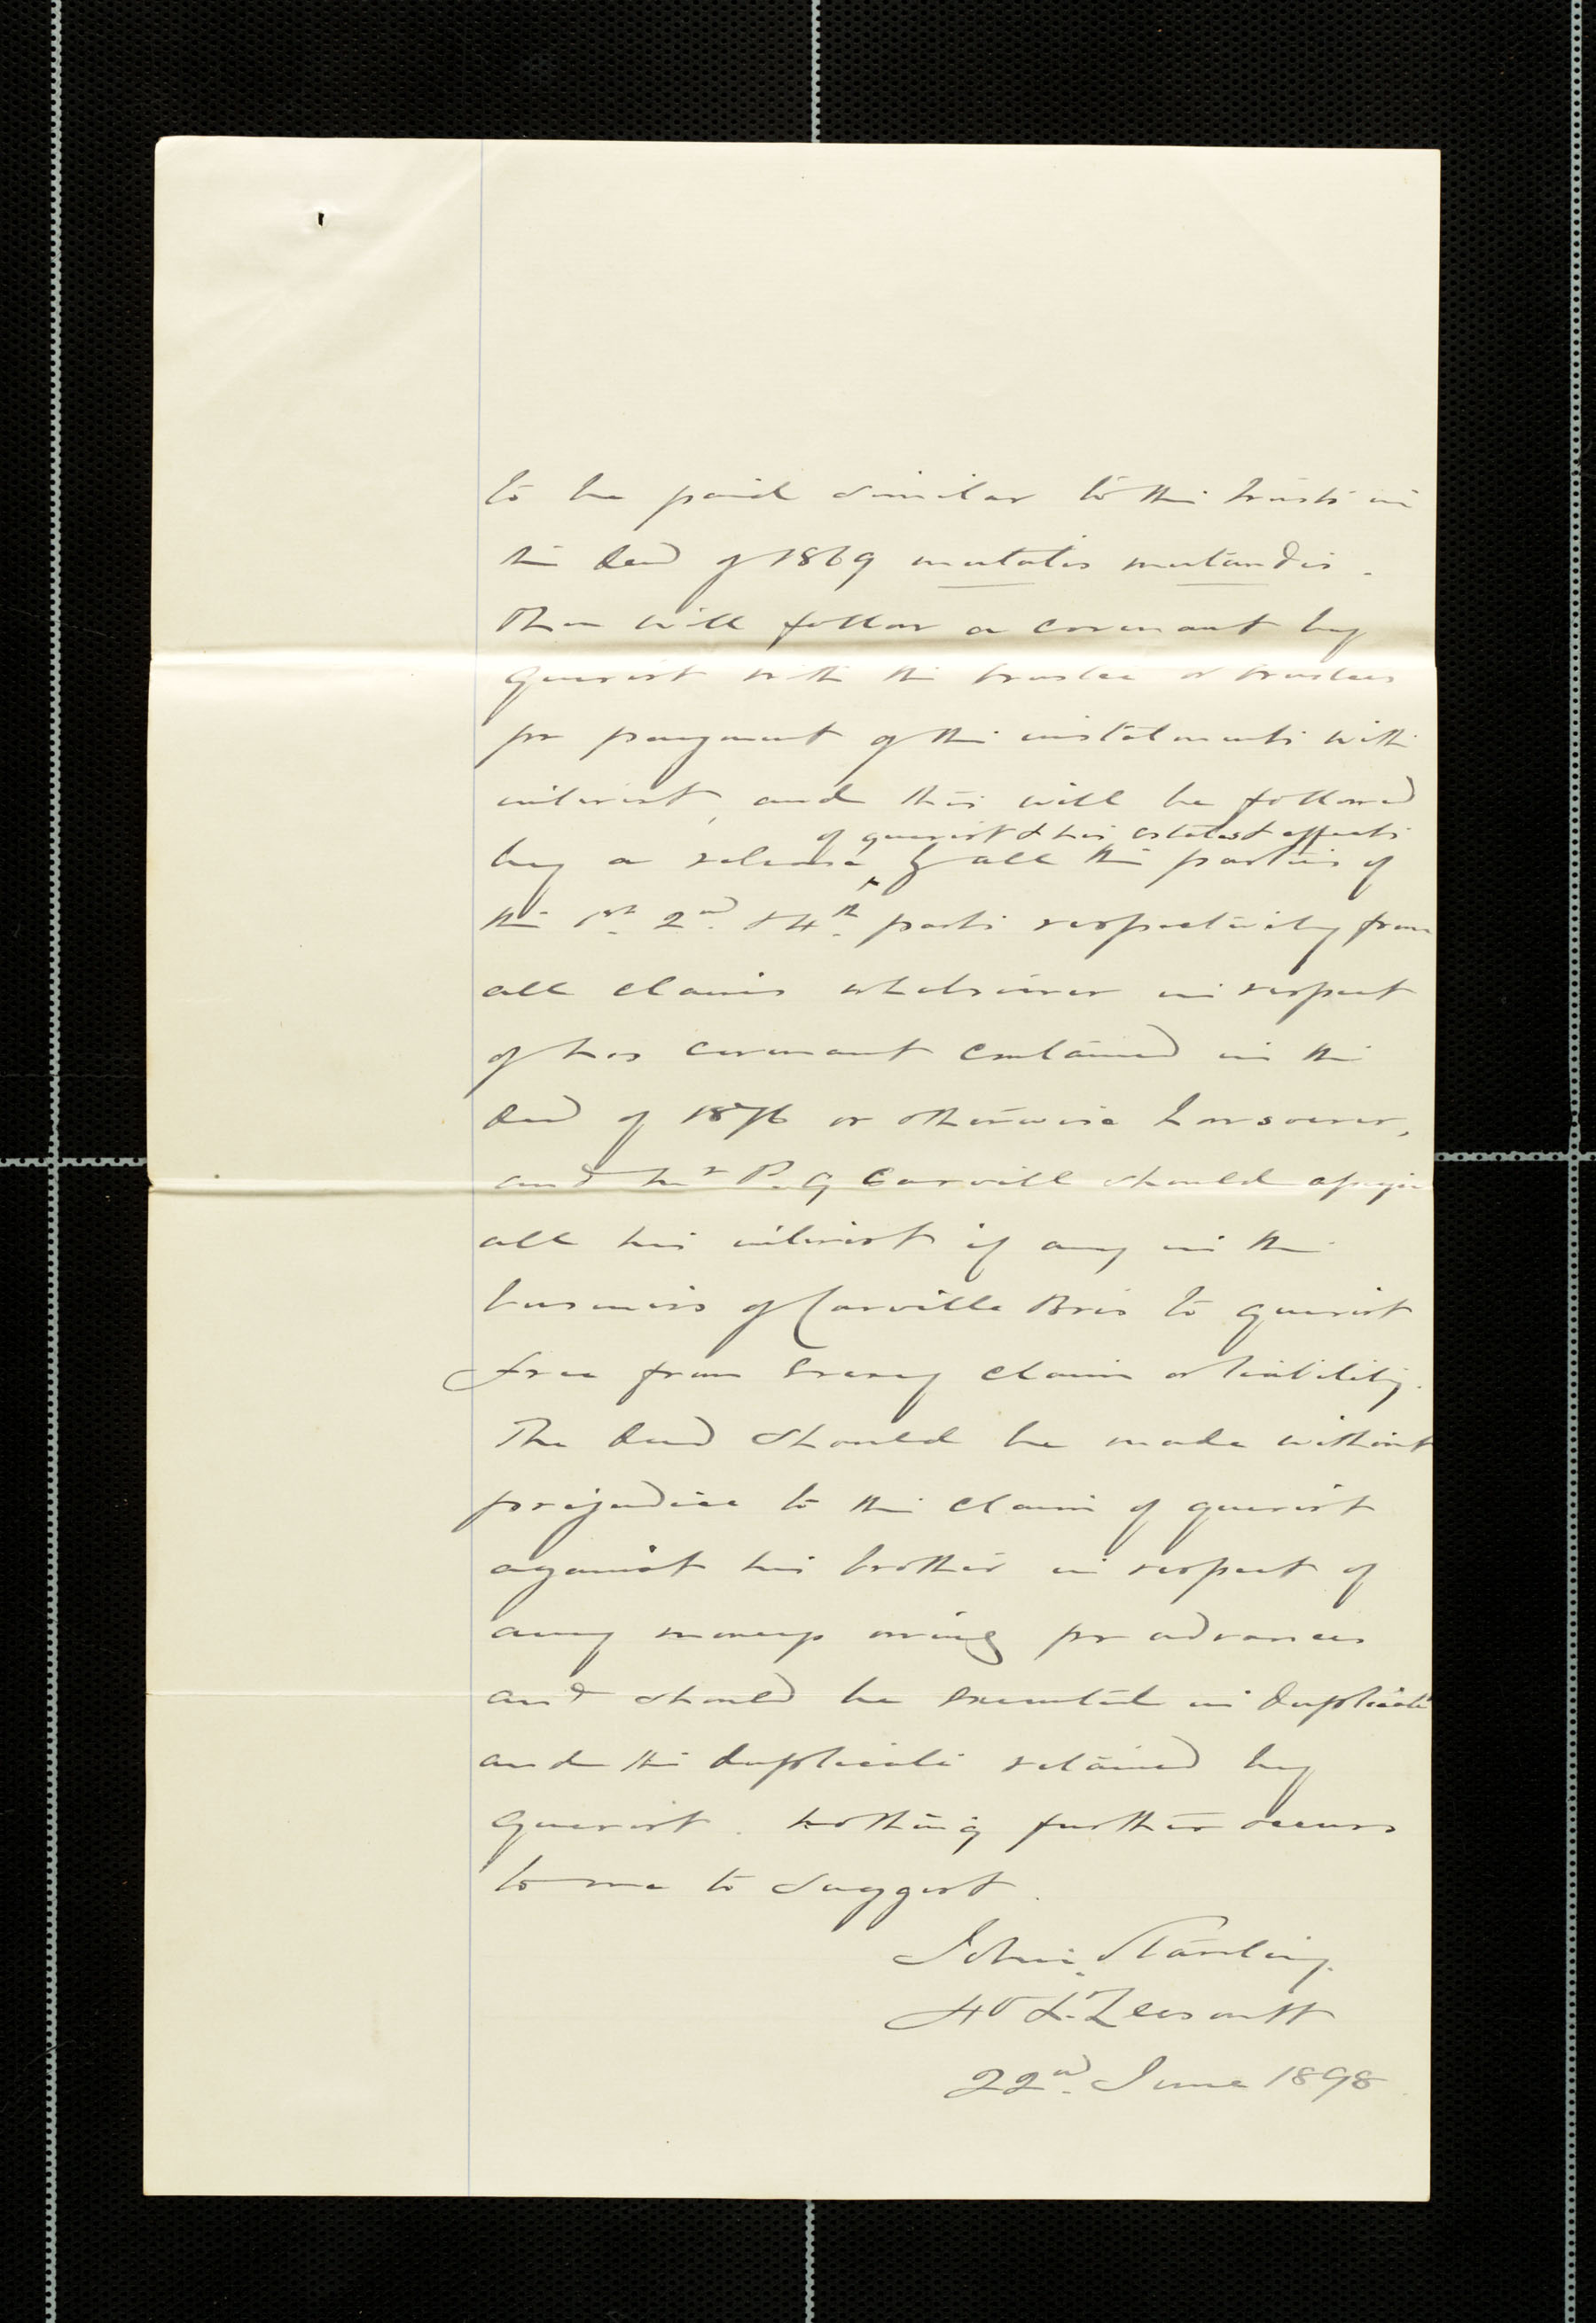 to be paid similar to the trusts in
the deed of 1869 mutatis mutandis.
Then will follow a covenant by
querist with the trustee or trustees
for payment of the instalments with
interest, and this will be followed
of querist & his estates & effects
by a release by all the parties of
the 1st 2nd & 4th parts respectively from
all claims whatsoever in respect
of his covenant contained in the
deed of 1876 or otherwise howsoever,
and Mr P. G Carvill should assign
all his interest if any in the
business of Carvill Bros to querist
free from every claim or liability.
The deed should be made without
prejudice to the claim of querist
against his brother in respect of
any moneys owing for advances
and should be executed in duplicate
and the duplicate retained by
querist. Nothing further occurs
to me to suggest.
John
22nd June 1898